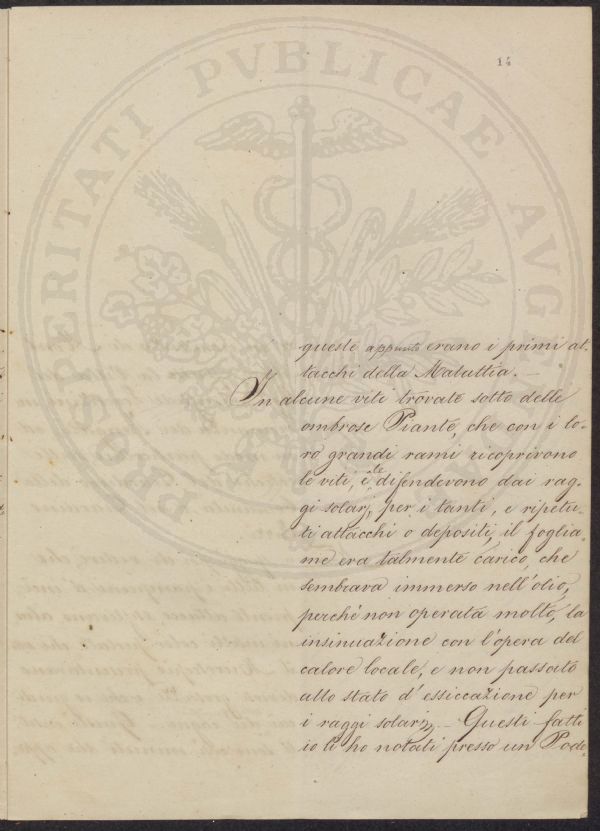 14
queste appunto erano i primi at.
tacchi della Maluttia. —
In alcune viti trovate sotto delle
ombrose Piante, che con i lo-
ro grandi rami ricoprirono
le viti, e le difenderono dai rag-
gi solari, per i tanti, e ripetu-
ti attacchi o depositi, il foglia-
me era talmente carico, che
sembrava immerso nell'olio,
perchè non operata molto, la
insinuazione con l'opera del
calore locale, e non passato
allo stato d'essiccazione per
i raggi solarj. — Questi fatti
io li ho notati presso un Pode.
PROSPERITATI PVBLICAE AVG